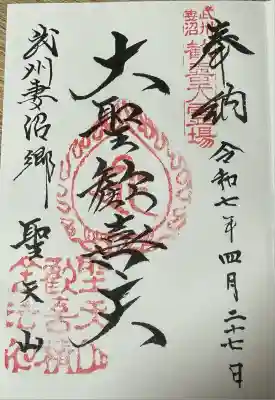 奉納
令和七年四月二十七日
大聖歓喜天
武州妻沼郷
聖天山
武州
妻沼
歓喜天霊場
聖天山
歓喜院